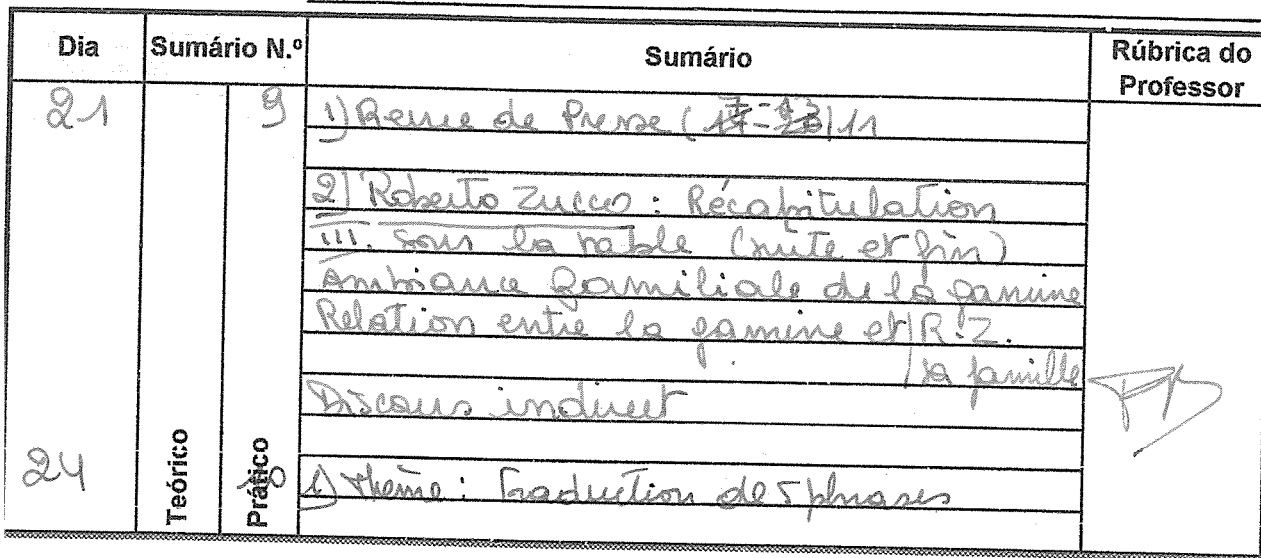 Dia Sumário N.º Sumário Rúbrica do Professor
21 9 1) Revue de Presse (7-13)11
2) Roberto Zucco : Récapitulation
III. Sous la table (suite et fin)
Ambiance familiale de la gamine
Relation entre la gamine et / R.Z.
/ sa famille
Discours indirect
Teórico Prático
24 10 1) Thème : Traduction de 5 phrases